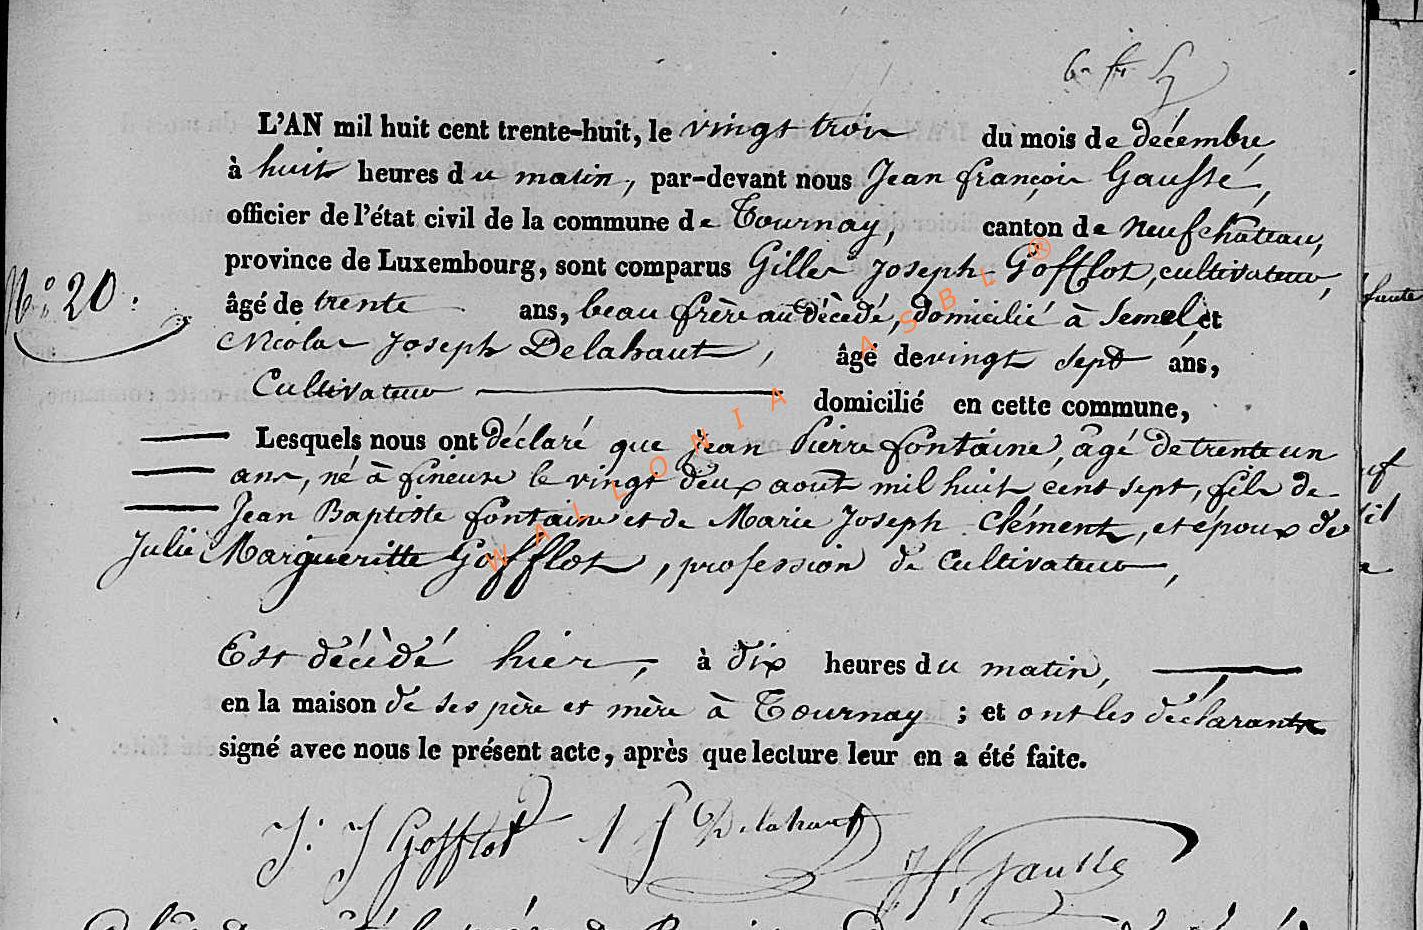 L'AN mil huit cent trente-huit, le vingt trois du mois de décembre
à huit heures du matin, par-devant nous Jean françois Gaussé,
officier de l'état civil de la commune de Tournay, canton de Neufchâteau,
province de Luxembourg, sont comparus Gilles Joseph Gofflot, cultivateur,
N° 20. âgé de trente ans, beau frère au décédé, domicilié à Semel, et
Nicolas Joseph Delahaut, âgé de vingt sept ans,
Cultivateur domicilié en cette commune,
Lesquels nous ont déclaré que jean Pierre fontaine, âgé de trente un
ans, né à fineuse le vingt deux août mil huit cent sept, fils de
Jean Baptiste fontaine et de Marie Joseph Clément, et époux de
Julie Margueritte Gofflot, profession de Cultivateur,
Est décédé hier, à dix heures du matin,
en la maison de ses père et mère à Tournay ; et ont les déclarants
signé avec nous le présent acte, après que lecture leur en a été faite.
J. J Gofflot N J Delahaut
Jf. Gaussé
WALLONIA ASBL ®